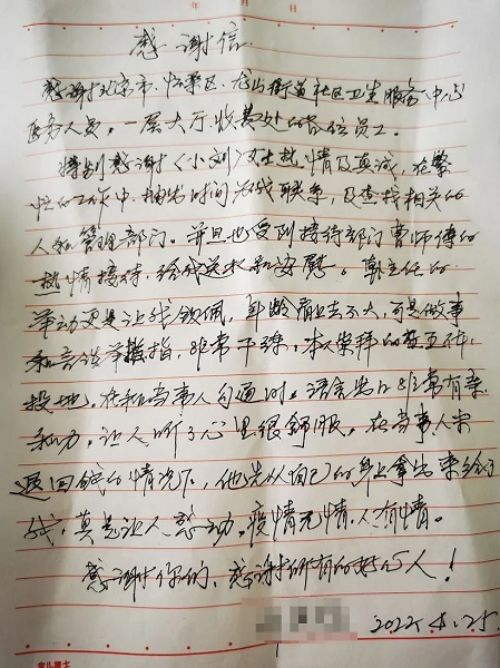 年 月 日
感谢信
感谢北京市.怀柔区.龙山街道社区卫生服务中心
医务人员,一层大厅.收费处的各位员工。
特别感谢《小刘》女士热情及真诚,在繁
忙的工作中.抽出时间为我联系,及查找相关的
人和管理部门。并且也受到接待部门曹师傅的
热情接待,给我送水和安慰。郭主任的
举动更是让我钦佩,年龄看上去不大,可是做事
和言谈举指,非常干练,本人崇拜的五体
投地。在和当事人勾通时.语言出口非常有亲
和力,让人听了心里很舒服。在当事人未
退回钱的情况下,他先从自己的身上拿出来给了
我,真是让人感动,疫情无情,人有情。
感谢你们,感谢所有的好心人!
2022.4.25.